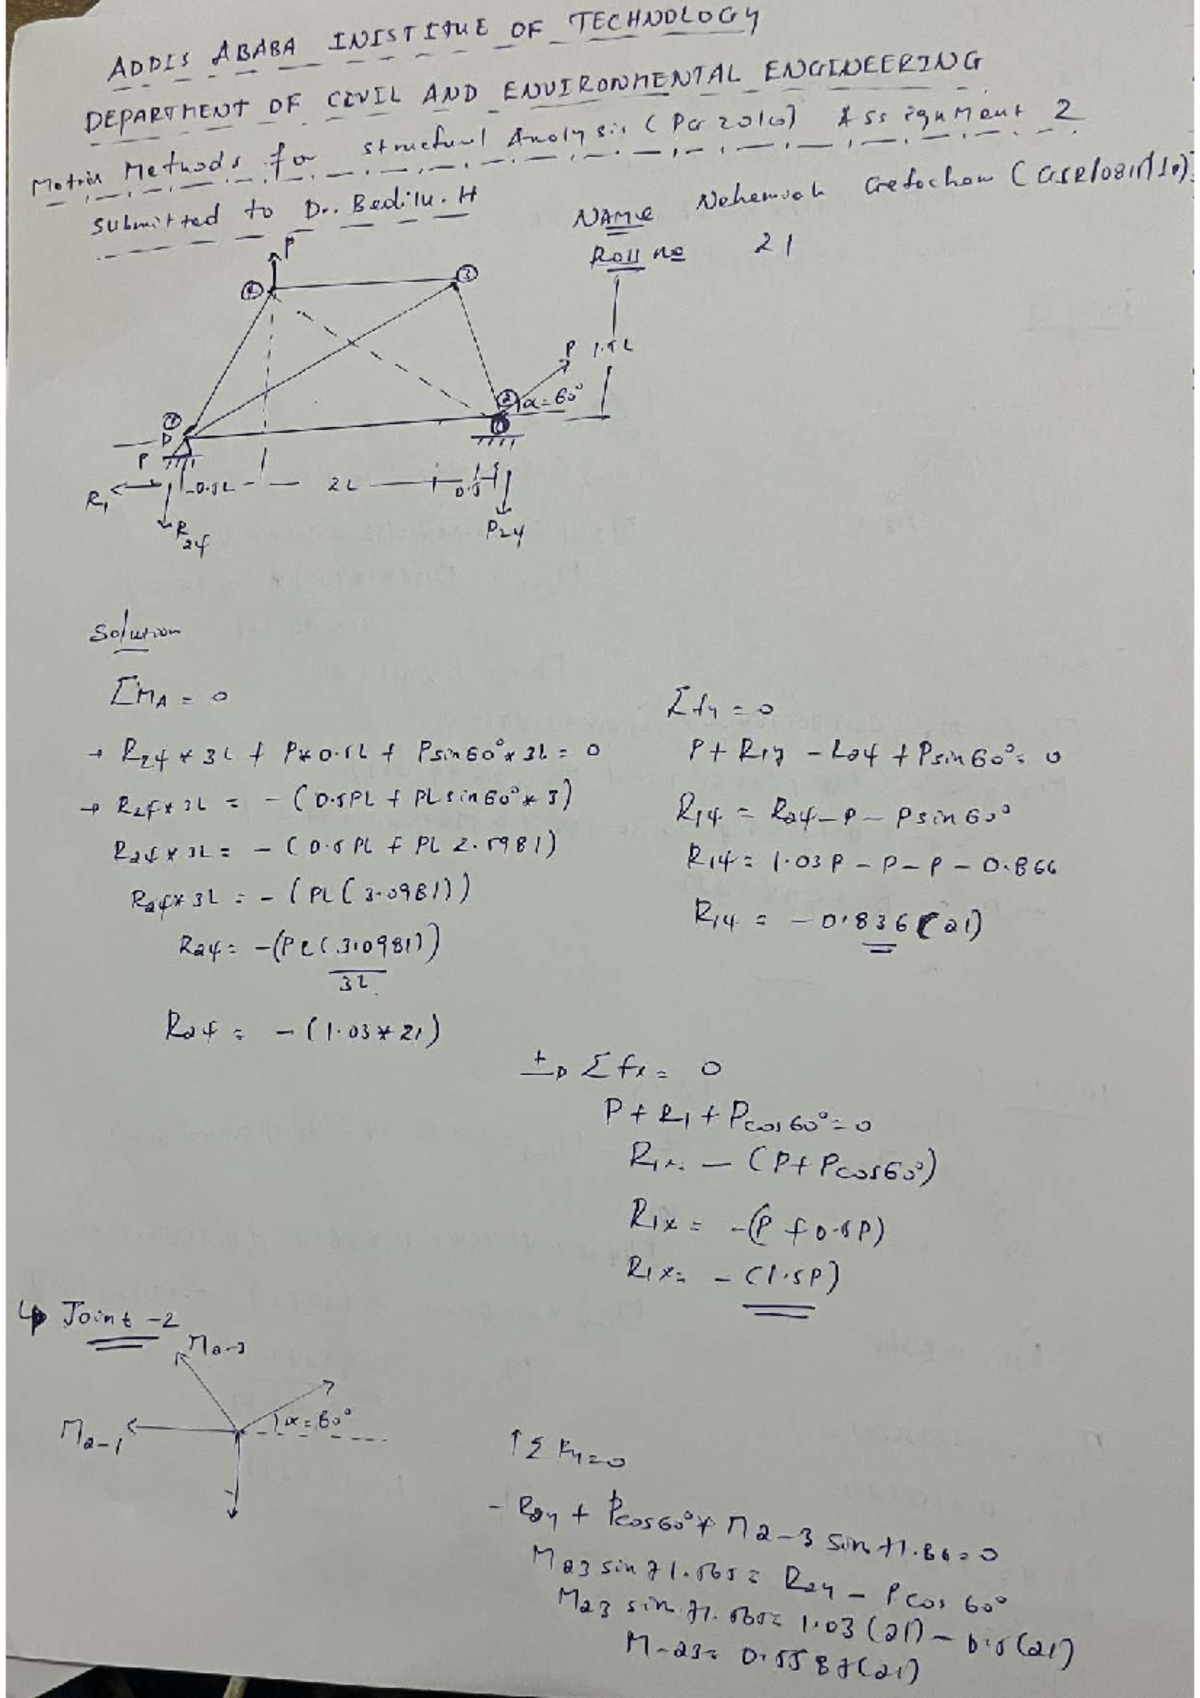 ADDIS ABABA INISTITUE OF TECHNOLOGY
DEPARTMENT OF CIVIL AND ENVIRONMENTAL ENGINEERING
Matrix Methods for structural Analysis (PG 2010) Assignment 2
submitted to Dr. Bedilu. H
NAME Nehemiah Getachew
Roll no 21
P
④ ③
P 1.5L
② α=60°
①
P
0.5L 2L 0.5
R1
R24 P24
Solution
ΣMA = 0
→ R24 * 3L + P*0.5L + Psin60° * 3L = 0
→ R24*3L = -(0.5PL + PLsin60° * 3)
R24*3L = -(0.5PL + PL 2.5981)
R24*3L = -(PL(3.0981))
R24 = -(PL(3.0981))
3L
R24 = -(1.03*21)
Σfy = 0
P + R1y - R24 + Psin60° = 0
R14 = R24 - P - Psin60°
R14 = 1.03P - P - P - 0.866
R14 = -0.836(21)
+ Σfx = 0
P + R1 + Pcos60° = 0
R1x = -(P + Pcos60°)
R1x = -(P + 0.5P)
R1x = -(1.5P)
↳ Joint -2
M2-3
α=60°
M2-1
↑ΣFy=0
- R2y + Pcos60° + M2-3 sin 71.56=0
M23 sin 71.565 = R2y - Pcos 60°
M23 sin 71.565 = 1.03(21) - 0.5(21)
M-23 = 0.5587(21)